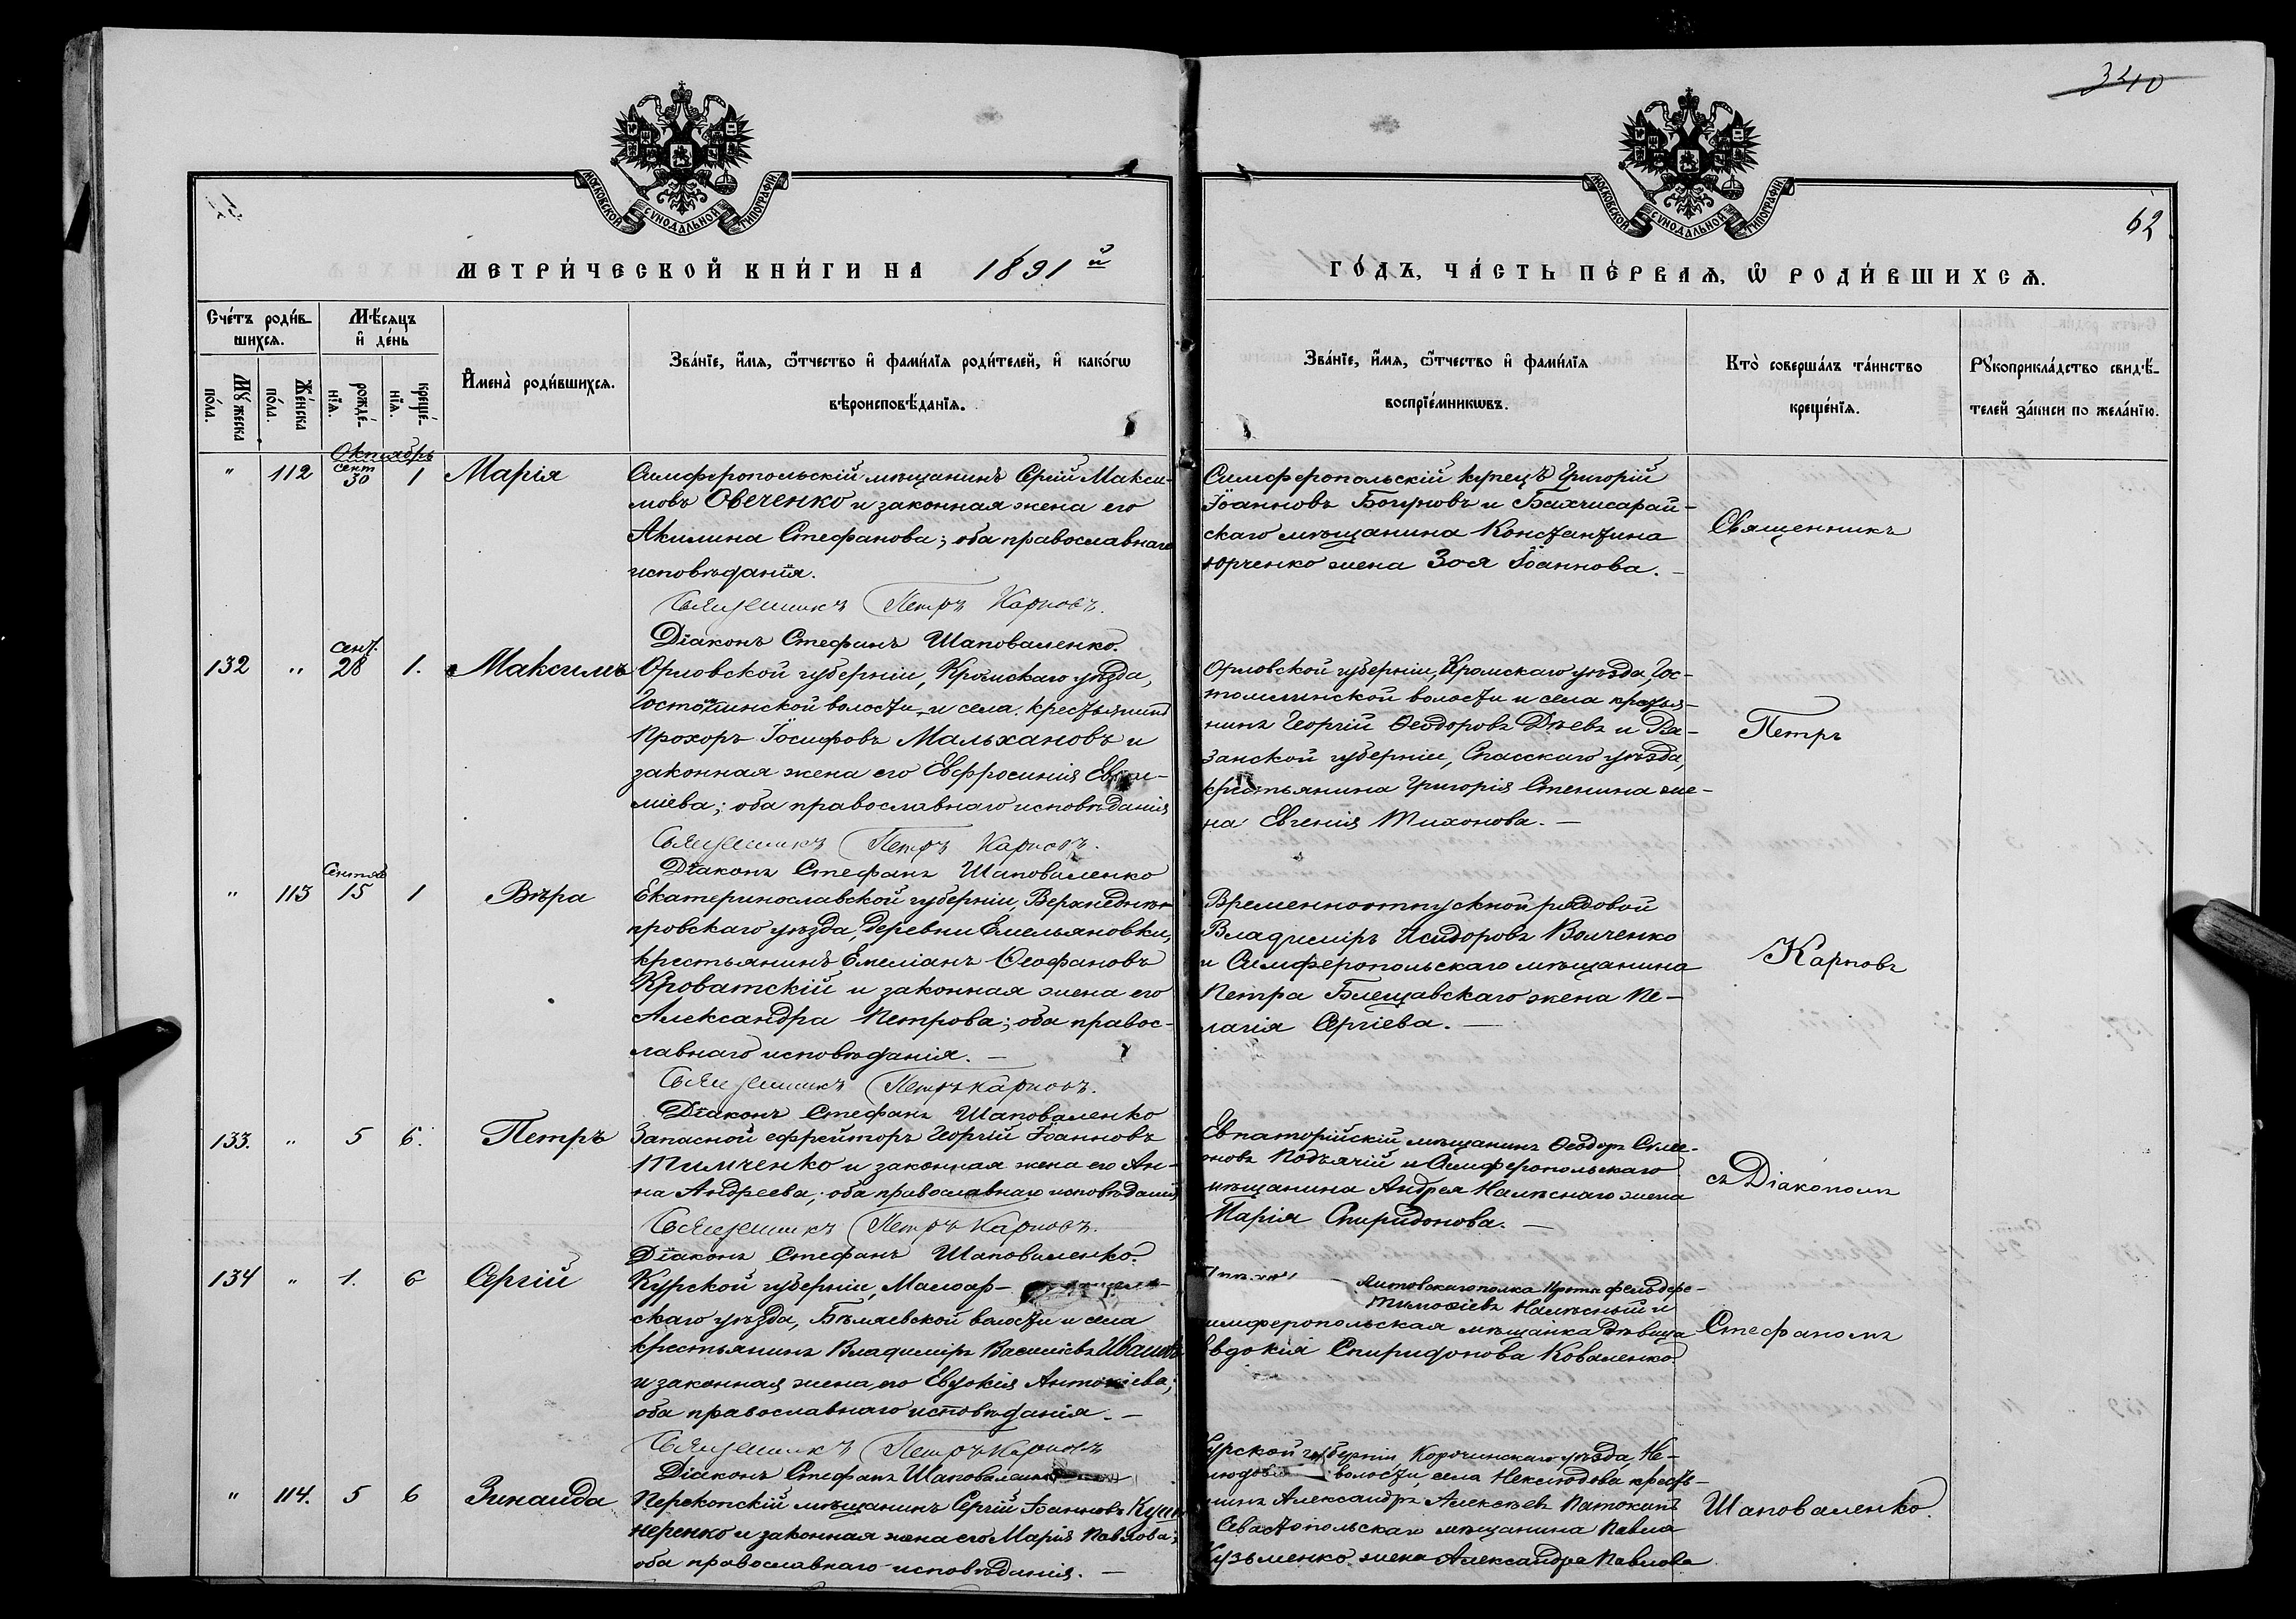 3210
62
МОСКОВСКОЙ СѴНОДАЛЬНОЙ ТИПОГРАФІИ.
МОСКОВСКОЙ СѴНОДАЛЬНОЙ ТИПОГРАФІИ.
МЕТРИ́ЧЕСКОЙ КНИ́ГИ НА 1891 й
ГО́ДЪ, ЧА́СТЬ ПЕ́РВАѦ, Ѽ РОДИ́ВШИХСѦ.
Сче́тъ роди́в-
шихсѧ.
Мꙋ́жеска по́ла.
Же́нска по́ла.
Мѣ́сѧцъ и҆ де́нь
рожде́-нїѧ.
креще́-нїѧ.
И҆мена̀ роди́вшихсѧ.
Зва́нїе, и҆́мѧ, ѻ҆́тчество и҆ фами́лїѧ роди́телей, и҆ како́гѡ
вѣроисповѣ́данїѧ.
Зва́нїе, и҆́мѧ, ѻ҆́тчество и҆ фами́лїѧ
воспрїе́мникѡвъ.
Кто̀ соверша́лъ та́инство
креще́нїѧ.
Рꙋкоприкла́дство свидѣ́-
телей за́писи по жела́нїю.
Октябрь
" 112 сент 30 1 Марія
Симферопольскій мѣщанинъ Сергій Макси-
мовъ Овеченко и законная жена его
Акилина Стефанова; оба православнаго
исповѣданія.
Священникъ Петръ Карповъ.
Діаконъ Стефанъ Шаповаленко.
Симферопольскій купецъ Григорій
Іоанновъ Богуновъ и Бахчисарай-
скаго мѣщанина Константина
Юрченко жена Зоя Іоаннова. —
Священникъ
132 " сент. 28 1. Максимъ
Орловской губерніи, Кромскаго уѣзда,
Гостомлинской волости и села крестьянинъ
Прохоръ Іосифовъ Мальхановъ и
законная жена его Евфросинія
оба православнаго исповѣданія
Священникъ Петръ Карповъ.
Діаконъ Стефанъ Шаповаленко
Орловской губерніи, Кромскаго уѣзда, Гос-
томлинской волости и села крестья-
нинъ Георгій Ѳеодоровъ Дѣевъ и Ря-
занской губерніи, Спасскаго уѣзда,
крестьянина Григорія Стенина же-
на Евгенія Тихонова. —
Петръ
" 113 Сентяб 15 1 Вѣра
Екатеринославской губерніи, Верхнеднѣ-
провскаго уѣзда, деревни Емельяновки,
крестьянинъ Емеліанъ Ѳеофановъ
Кроватскій и законная жена его
Александра Петрова; оба правос-
лавнаго исповѣданія. —
Священникъ Петръ Карповъ.
Діаконъ Стефанъ Шаповаленко
Временноотпускной рядовой
Владиміръ Исидоровъ Волченко
и Симферопольскаго мѣщанина
Петра Блещавскаго жена Пе-
лагія Сергіева. —
Карповъ
133. " 5 6. Петръ
Запасной ефрейторъ Георгій Іоанновъ
Тимченко и законная жена его Ан-
на Андреева; оба православнаго исповѣданія
Священникъ Петръ Карповъ.
Діаконъ Стефанъ Шаповаленко.
Евпаторійскій мѣщанинъ Ѳеодоръ Симе-
оновъ Подъячій и Симферопольскаго
мѣщанина Андрея Налѣснаго жена
Марія Спиридонова. —
съ Діакономъ
134 " 1. 6 Сергій
Курской губерніи, Малоар-
скаго уѣзда, Бѣляевской волости и села
крестьянинъ Владиміръ Василіевъ
и законная жена его Евдокія
оба православнаго исповѣданія. —
Священникъ Петръ Карповъ
Діаконъ Стефанъ Шаповаленко
Литовскаго полка
Тимоѳеевъ Налѣсный и
имферопольская мѣщанка дѣвица
Евдокія Спиридонова Коваленко.
Стефаномъ
" 114. 5 6 Зинаида
Перекопскій мѣщанинъ Сергій Іоанновъ
неренко и законная жена его Марія Павлова;
оба православнаго исповѣданія. —
Курской губерніи, Корочинскаго уѣзда, Не-
волости, села Неклюдова крестья-
нинъ Александръ Алексѣевъ
Севастопольскаго мѣщанина Павла
Кузьменко жена Александра Павлова
Шаповаленко.